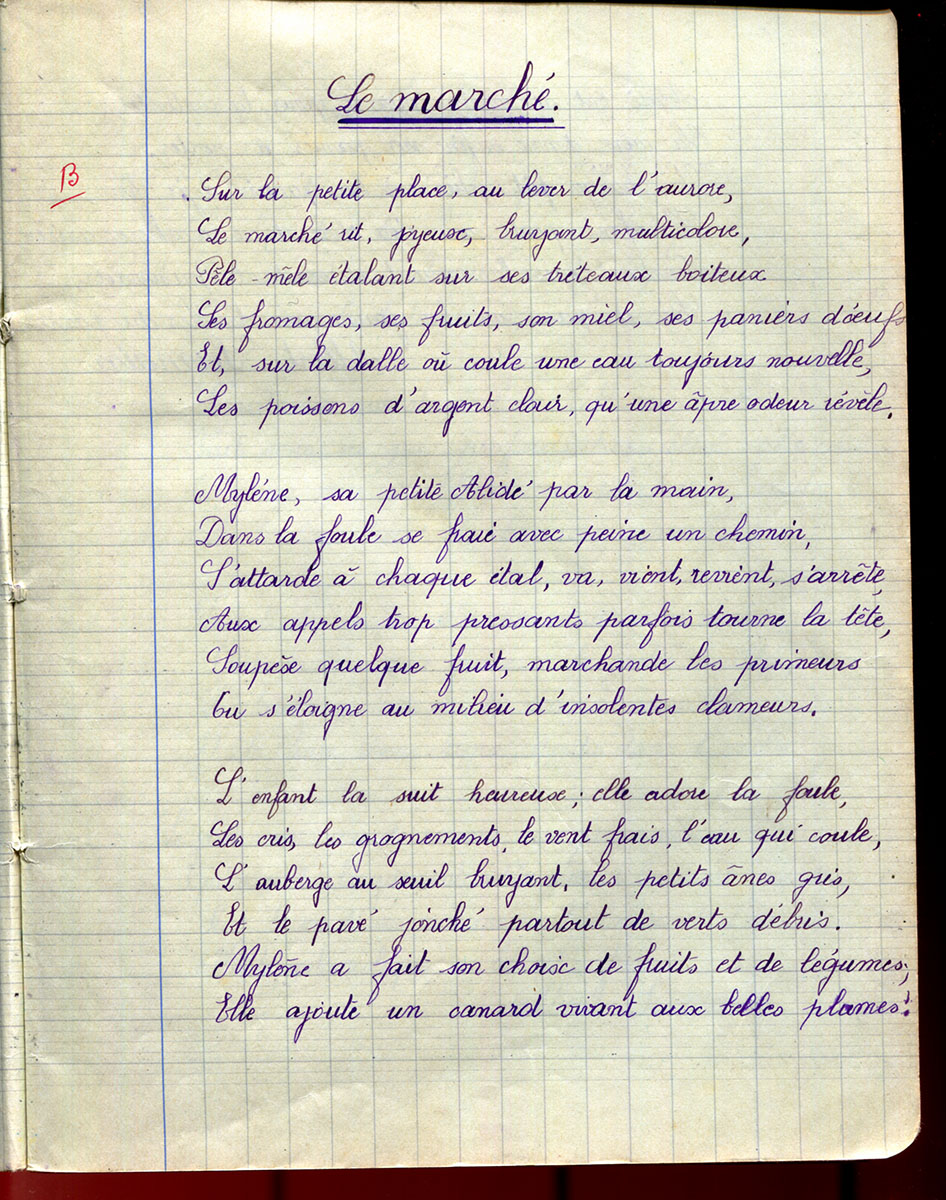 Le marché.
B
Sur la petite place, au lever de l'aurore,
Le marché rit, joyeux, bruyant, multicolore,
Pêle-mêle étalant sur ses tréteaux boiteux
Ses fromages, ses fruits, son miel, ses paniers d'œufs
Et, sur la dalle où coule une eau toujours nouvelle,
Ses poissons d'argent clair, qu'une âpre odeur révèle.
Mylène, sa petite Alidé par la main,
Dans la foule se fraie avec peine un chemin,
S'attarde à chaque étal, va, vient, revient, s'arrête,
Aux appels trop pressants parfois tourne la tête,
Soupèse quelque fruit, marchande les primeurs
Ou s'éloigne au milieu d'insolentes clameurs.
L'enfant la suit heureuse ; elle adore la foule,
Les cris, les grognements, le vent frais, l'eau qui coule,
L'auberge au seuil bruyant, les petits ânes gris,
Et le pavé jonché partout de verts débris.
Mylène a fait son choix de fruits et de légumes ;
Elle ajoute un canard vivant aux belles plumes !